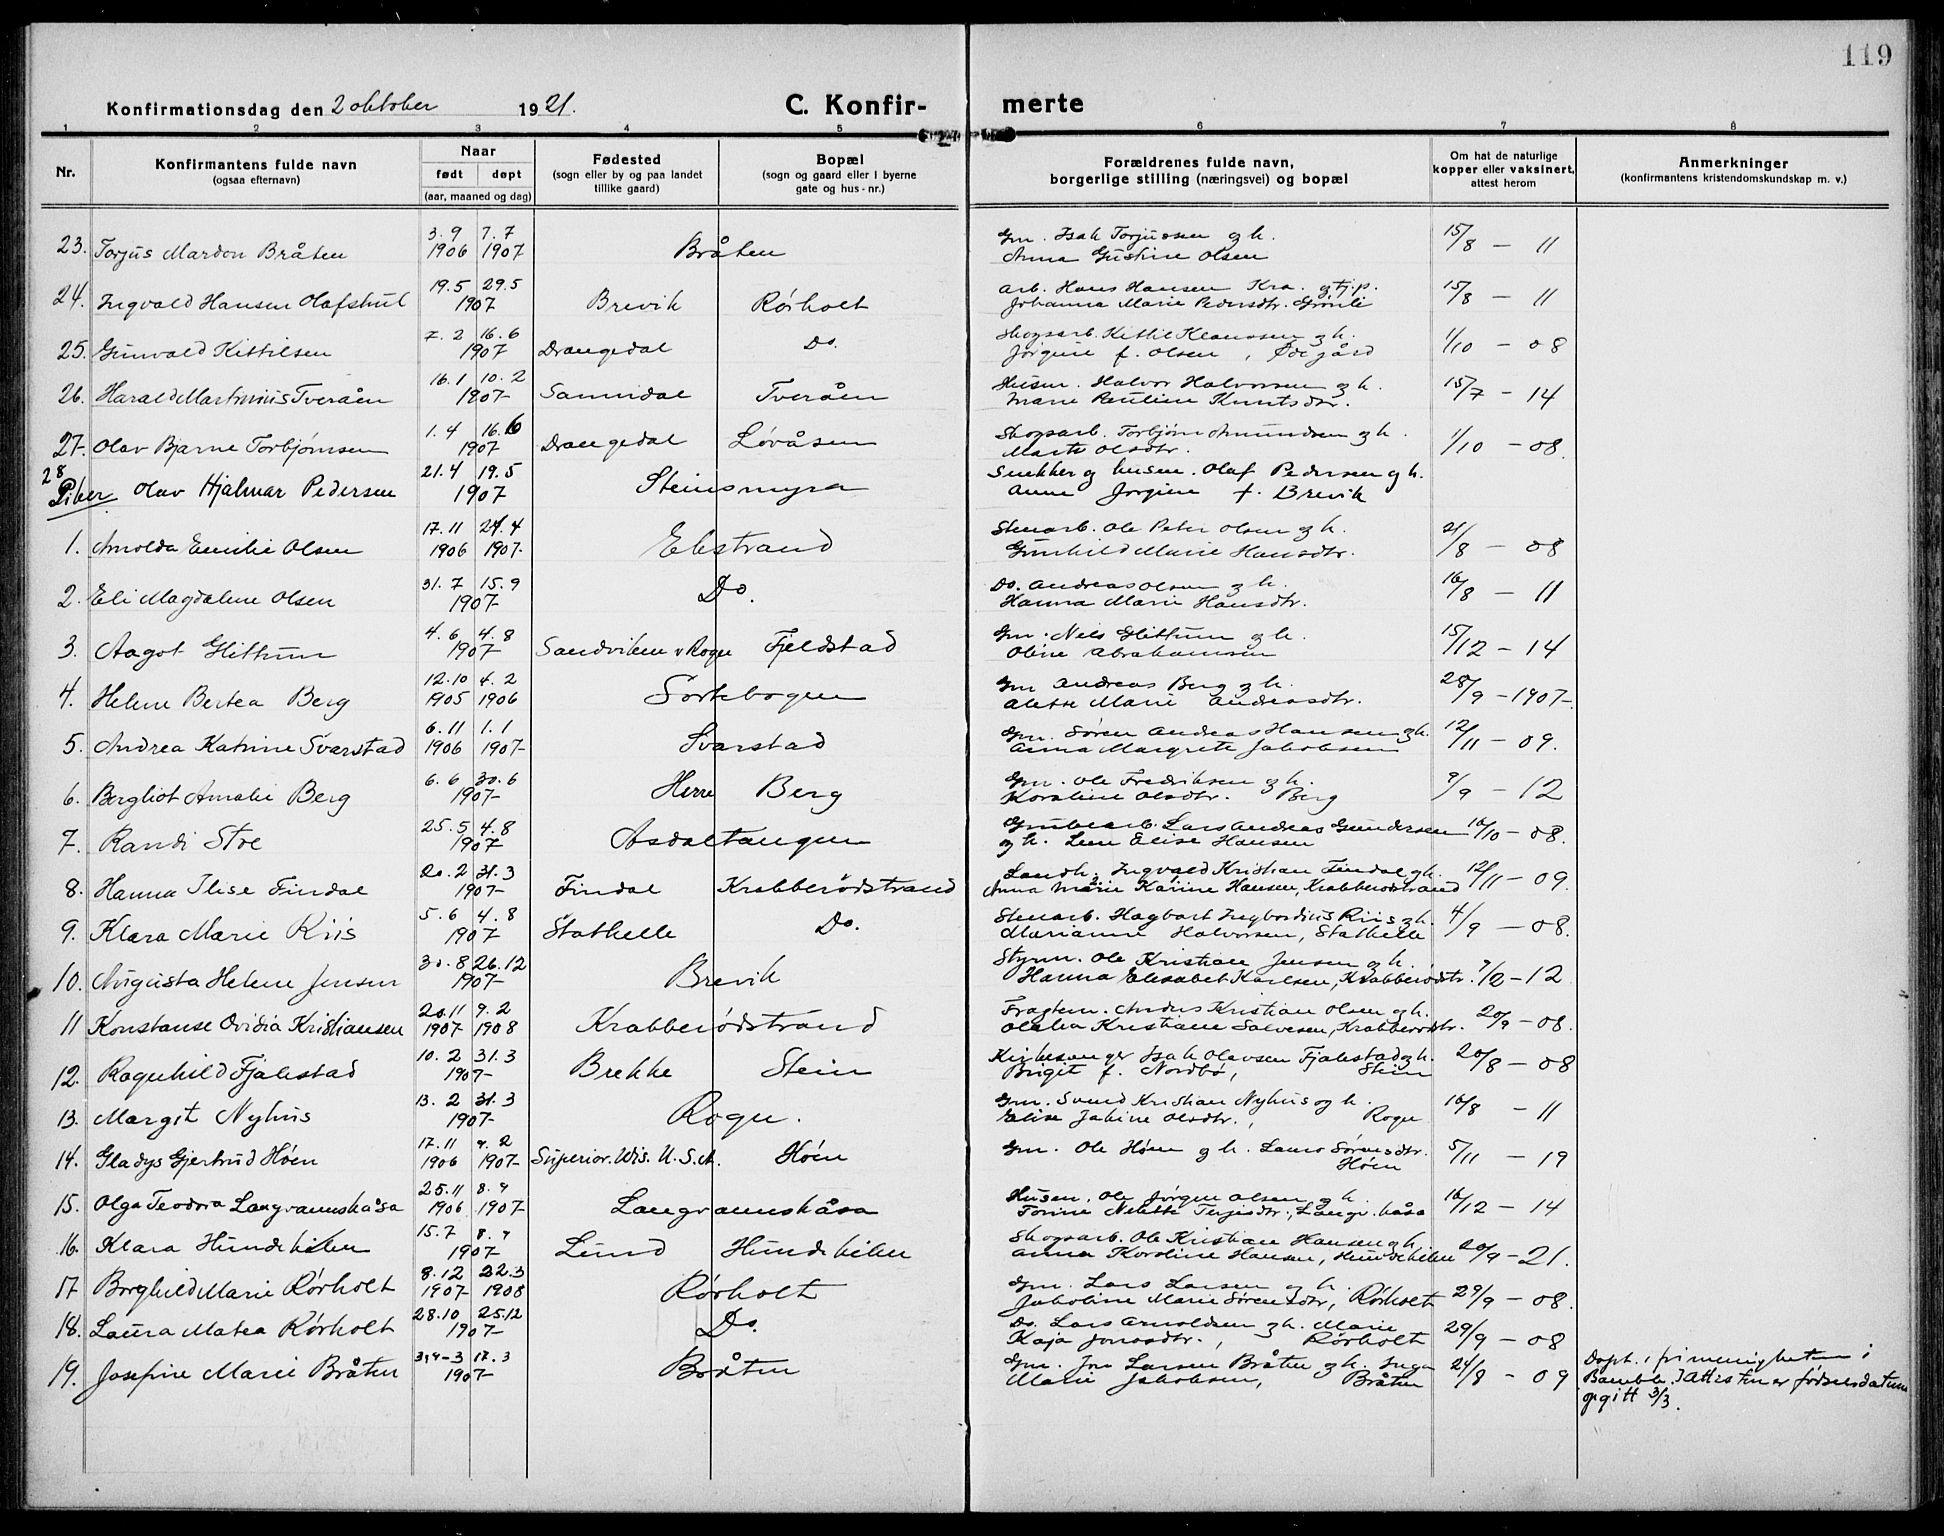 119
Konfirmationsdag den 2 oktober 1921.
C. Konfirmerte
1 2 3 4 5 6 7 8
Nr.
Konfirmantens fulde navn
(ogsaa efternavn)
Naar
født døpt
(aar, maaned og dag)
Fødested
(sogn eller by og paa landet
tillike gaard)
Bopæl
(sogn og gaard eller i byerne
gate og hus-nr.)
Forældrenes fulde navn,
borgerlige stilling (næringsvei) og bopæl
Om hat de naturlige
kopper eller vaksinert,
attest herom
Anmerkninger
(konfirmantens kristendomskundskap m. v.)
23. Torjus Mardon Bråten 3.9 1906 7.7 1907 Bråten Gm. Isak Torjussen og h. 15/8 - 11
Anna Gustine Olsen
24. Ingvald Hansen Olafskul 19.5 29.5 1907 Brevik Rørholt Arb. Hans Hansen Kra. og pip. 15/8 - 11
Johanna Marie Pedersdtr. Grønli
25. Gunvald Kittilsen 7.2 16.6 1907 Drangedal Do. Skogsarb. Kittil Klaussen og h. 1/10 - 08
Jørgine f. Olsen, Ødegård
26. Harald Martinius Tveråen 16.1 10.2 1907 Sannidal Tveråen Husm. Halvor Halvorsen og h. 15/7 - 14
Marie Pauline Knutsdtr.
27. Olav Bjarne Torbjørnsen 1.4 16.6 1907 Drangedal Løvåsen Skogsarb. Torbjørn Amundsen og h. 1/10 - 08.
Marte Olsdtr.
28 Olav Hjalmar Pedersen 21.4 19.5 1907 Steinsmyra Snekker og husm. Olaf Pedersen og h.
Anne Jørgine f. Brevik
Piker
1. Arnolda Emilie Olsen 17.11 1906 24.4 1907 Ekstrand Stenarb. Ole Peter Olsen og h. 21/8 - 08
Gunhild Marie Hansdtr.
2. Eli Magdalene Olsen 31.7 15.9 1907 Do. Do. Andreas Olsen og h. 16/8 - 11
Hanna Marie Hansdtr.
3. Aagot Glittum 4.6 4.8 1907 Sandviken v Rogn Fjeldstad Gm. Nils Glittum og h. 15/12 - 14
Oline Abrahamsen
4. Helene Bertea Berg 12.10 1905 4.2 1906 Sortebogen Gm Andreas Berg og h. 28/9 - 1907
Alette Marie Andersdtr.
5. Andrea Katrine Svarstad 6.11 1906 1.1 1907 Svarstad Gm. Søren Andreas Hansen og h. 12/11 - 09.
Anna Margrete Jakobsen
6. Bergliot Amalie Berg 6.6 30.6 1907 Herre Berg Gm. Ole Fredriksen og h. 9/9 - 12
Karoline Olsdtr. Berg
7. Randi Stoe 25.5 4.8 1907 Asdaltangen Grubearb. Lars Andreas Gundersen 10/10 - 08.
og h. Lene Elise Hansen
8. Hanna Ilise Findal 20.2 31.3 1907 Findal Krabberødstrand Landh. Ingvald Kristian Findal og h. 12/11 - 09.
Anna Marie Karine Hansen, Krabberødstrand
9. Klara Marie Riis 5.6 4.8 1907 Stathelle Do. Stenarb. Hagbart Ingbordius Riis og h. 4/9 - 08.
Marianne Halvorsen, Stathelle
10. Augusta Helene Jensen 30.8 26.12 1907 Brevik Styrm. Ole Kristian Jensen og h. 7/2 - 12
Hanna Elisabet Karlsen, Krabberødstr.
11 Konstanse Ovidia Kristiansen 20.11 1907 9.2 1908 Krabberødstrand Fragtem. Anders Kristian Olsen og h. 20/9 - 08.
Olalia Kristiane Salvesen, Krabberødstr.
12. Ragnhild Fjalestad 10.2 31.3 1907 Brekke Stein Kirkesanger Isak Olavsen Fjalestad og h. 20/8 - 08
Birgit f. Nordbø, Stein
13. Margit Nyhus 13.2 31.3 1907 Rogn. Gm. Svend Kristian Nyhus og h. 16/8 - 11
Elise Jakine Olsdtr., Rogn
14. Gladys Gjertrud Høen 17.11 1906 4.2 1907 Superior. Wis. U.S.A. Høen Gm. Ole Høen og h. Laura Sørensdtr. 5/11 - 19
Høen
15. Olga Teodora Langvannskåsa 25.11 1906 8.9 1907 Langvannskåsa Husm. Ole Jørgen Olsen og h. 16/12 - 14
Torine Nelette Terjesdtr., Langv.kåsa
16. Klara Hundekilen 15.7 8.9 1907 Lund Hundekilen Skogsarb. Ole Kristian Hansen og h. 20/9 - 21.
Anna Karoline Hansen, Hundekilen
17 Borghild Marie Rørholt 8.12 1907 22.3 1908 Rørholt Gm. Lars Larsen og h. 29/9 - 08.
Jakoline Marie Sørensdtr, Rørholt
18. Laura Matea Rørholt 28.10 25.12 1907 Do. Do. Lars Arnoldsen og h. Marie 29/9 - 08
Kaja Jonasdtr., Rørholt
19. Josefine Marie Bråten 3/4-3 17.3 1907 Bråten Gm. Jon Larsen Bråten og h. Inga 24/8 - 09
Marie Jakobsen, Bråten
Døpt i frimenigheten i
Bamble. I attesten er fødselsdatum
opgitt 3/3.